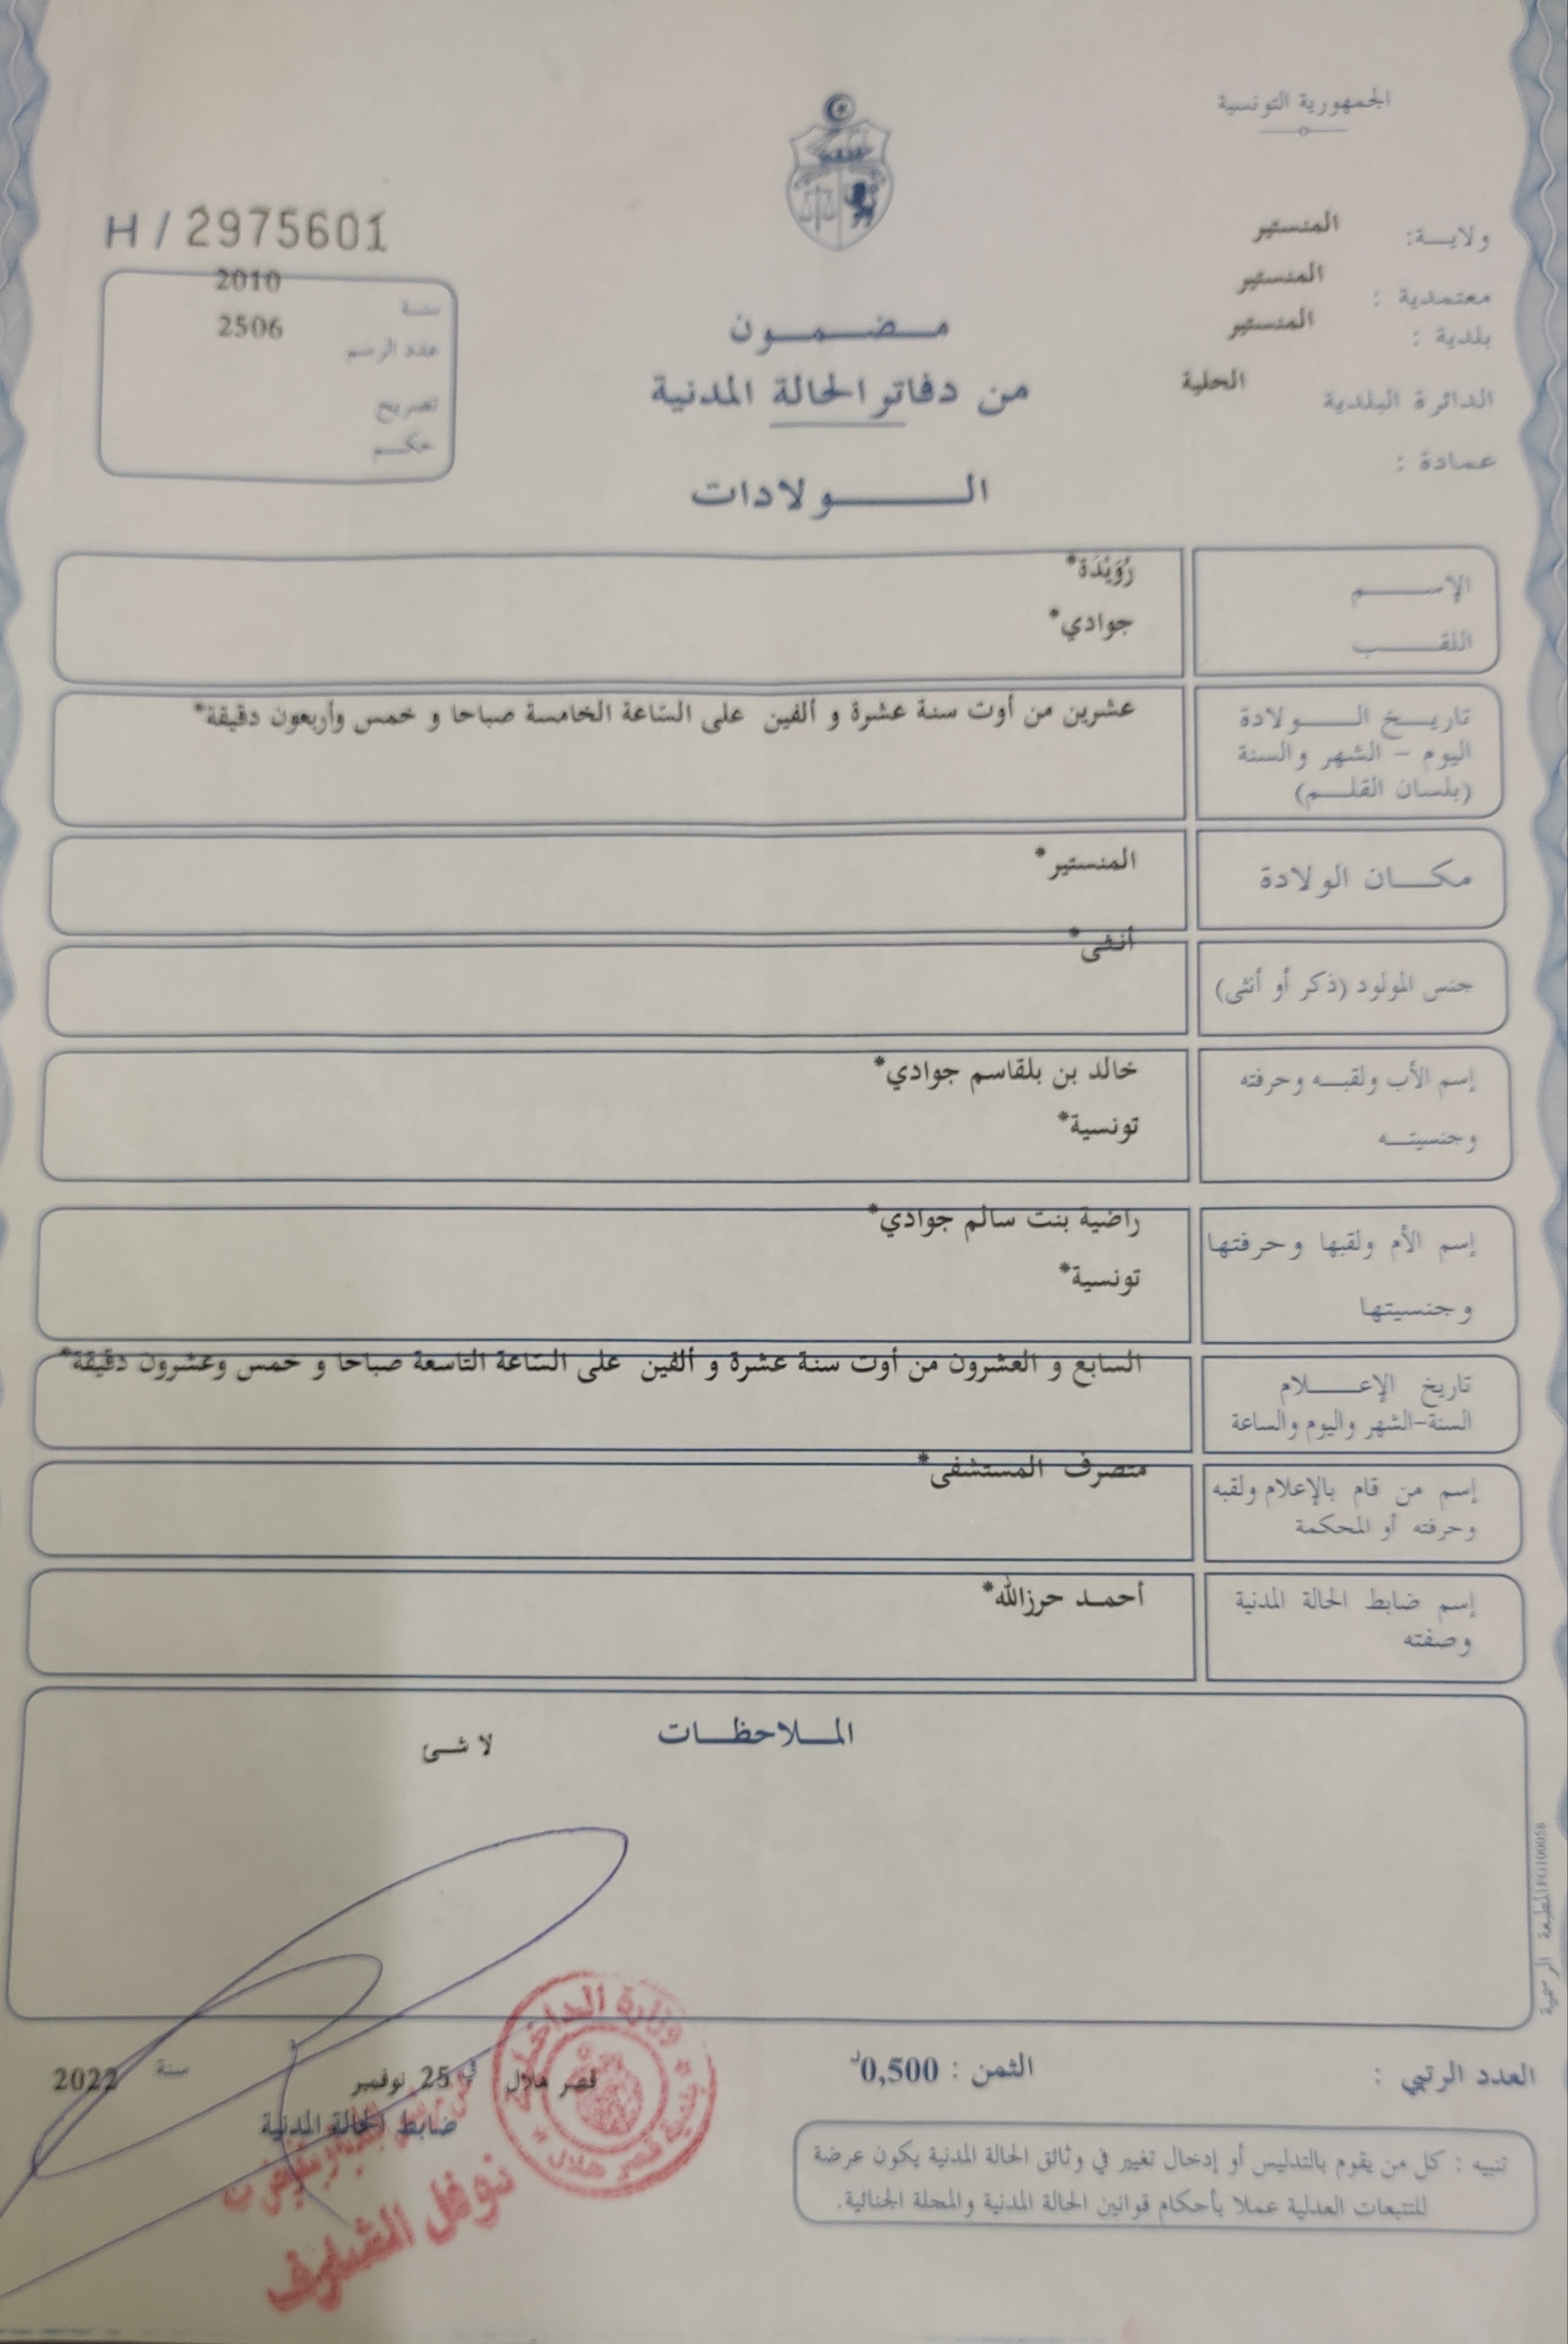 الجمهورية التونسية
ولايـــة: المنستير
معتمدية : المنستير
بلدية : المنستير
الدائرة البلدية الحلية
عمادة :
H / 2975601
سنة 2010
عدد الرسم 2506
تصريح
حكم
مضمون
من دفاتر الحالة المدنية
الولادات
الإسم رُوَيْدَة*
اللقب جوادي*
تاريخ الولادة عشرين من أوت سنة عشرة و ألفين على السّاعة الخامسة صباحا و خمس وأربعون دقيقة*
اليوم - الشهر والسنة
(بلسان القلم)
مكان الولادة المنستير*
جنس المولود (ذكر أو أنثى) أنثى*
إسم الأب ولقبه وحرفته خالد بن بلقاسم جوادي*
وجنسيته تونسية*
إسم الأم ولقبها وحرفتها راضية بنت سالم جوادي*
وجنسيتها تونسية*
تاريخ الإعلام السابع و العشرون من أوت سنة عشرة و ألفين على السّاعة التاسعة صباحا و خمس وعشرون دقيقة*
السنة-الشهر واليوم والساعة
إسم من قام بالإعلام ولقبه متصرف المستشفى*
وحرفته أو المحكمة
إسم ضابط الحالة المدنية أحمد حرزالله*
وصفته
الملاحظات
لا شئ
المطبعة الرسمية
العدد الرتبي :
الثمن : 0,500د
قصر هلال في 25 نوفمبر سنة 2022
ضابط الحالة المدنية
وزارة الداخلية
بلدية قصر هلال
نوفل الشارف
تنبيه : كل من يقوم بالتدليس أو إدخال تغيير في وثائق الحالة المدنية يكون عرضة
للتتبعات العدلية عملا بأحكام قوانين الحالة المدنية والمجلة الجنائية.